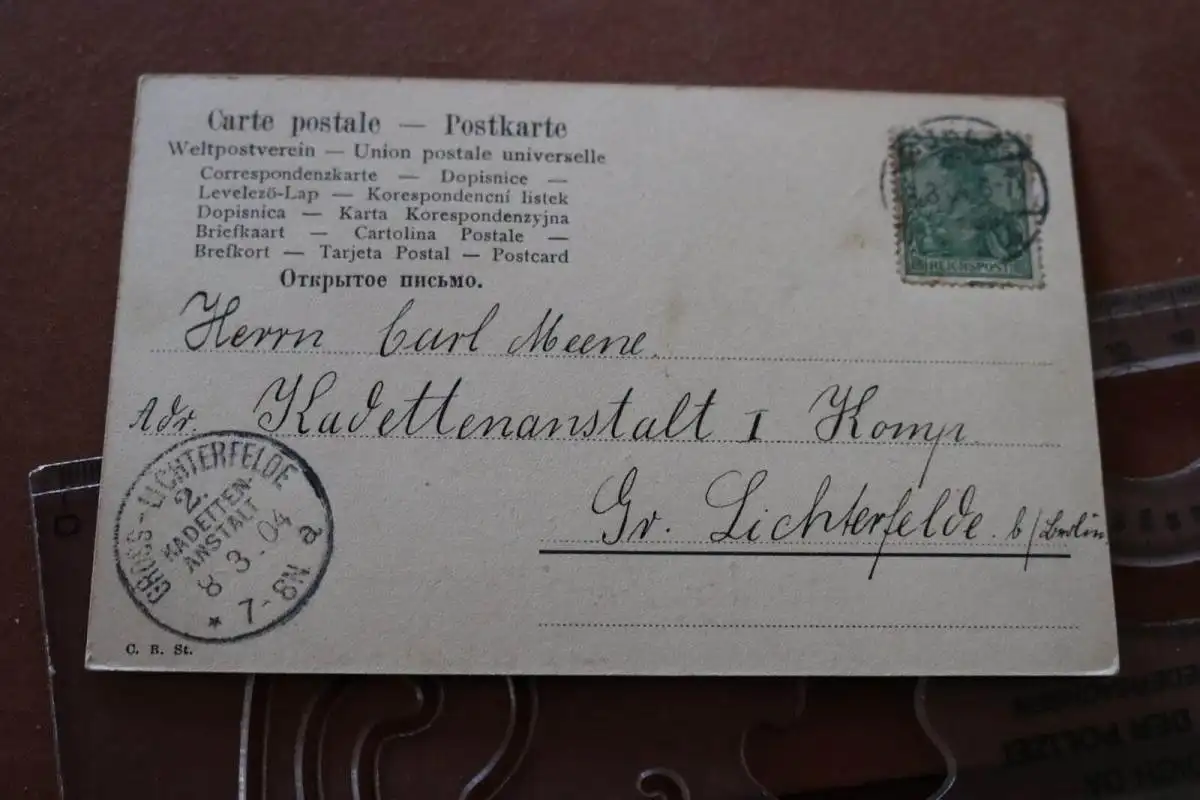 Carte postale — Postkarte
Weltpostverein — Union postale universelle
Correspondenzkarte — Dopisnice —
Levelező-Lap — Korespondencní listek
Dopisnica — Karta Korespondenzyjna
Briefkaart — Cartolina Postale —
Brefkort — Tarjeta Postal — Postcard
Открытое письмо.
REICHSPOST
Herrn Carl Meene.
Adr. Kadettenanstalt I Komp.
Gr. Lichterfelde. b/Berlin.
GROSS-LICHTERFELDE
2.
KADETTEN-
ANSTALT
8 3.04
* 7-8N a
C. R. St.
DER POLIZEI